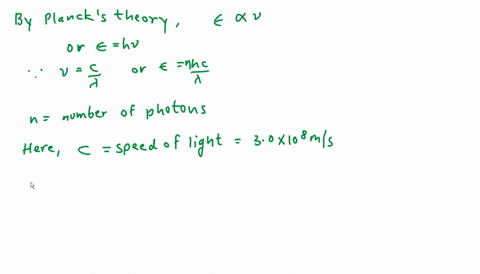 By Planck's theory, ϵ ∝ ν
or ϵ = hν
∵ ν = c/λ or ϵ = nhc/λ
n = number of photons
Here, c = speed of light = 3.0 × 10⁸ m/s